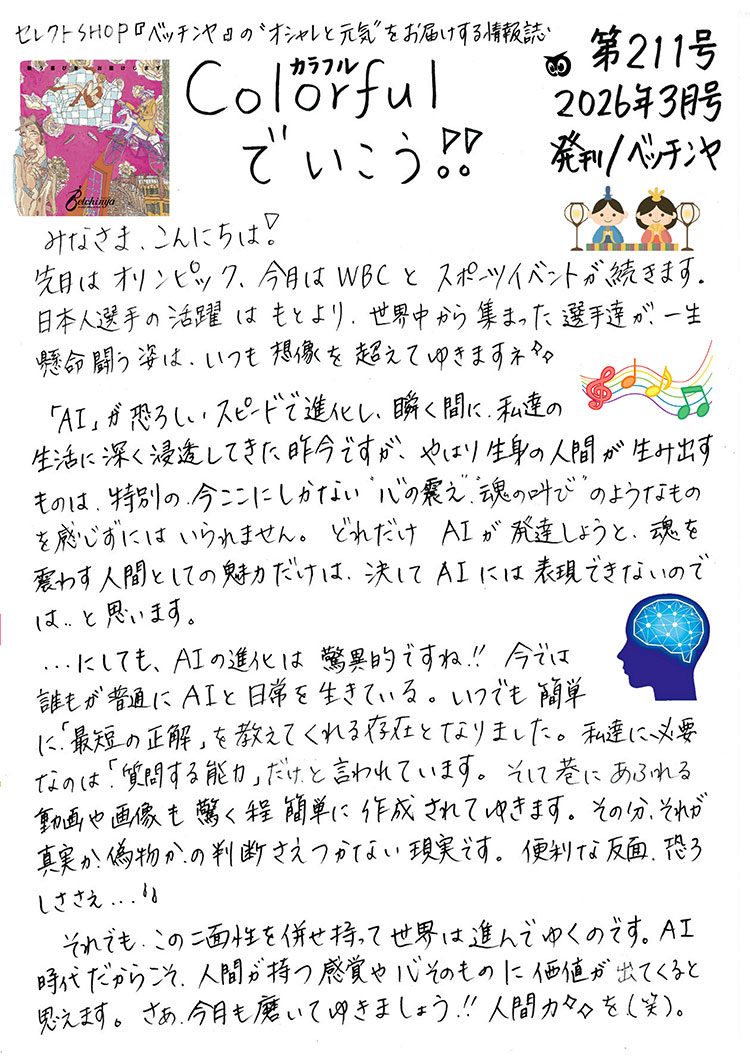 セレクトSHOP『ベッチンヤ』の"オシャレと元気"をお届けする情報誌
第211号
2026年3月号
発刊/ベッチンヤ
カラフル
Colorful
でいこう!!
Betchinya
みなさま、こんにちは!
先日はオリンピック、今月はWBCとスポーツイベントが続きます。
日本人選手の活躍はもとより、世界中から集まった選手達が、一生
懸命闘う姿は、いつも想像を超えてゆきますネ
「AI」が恐ろしいスピードで進化し、瞬く間に、私達の
生活に深く浸透してきた昨今ですが、やはり生身の人間が生み出す
ものは、特別の、今ここにしかない"心の震え""魂の叫び"のようなもの
を感じずにはいられません。どれだけAIが発達しようと、魂を
震わす人間としての魅力だけは、決してAIには表現できないので
は..と思います。
...にしても、AIの進化は驚異的ですね!! 今では
誰もが普通にAIと日常を生きている。いつでも簡単
に、「最短の正解」を教えてくれる存在となりました。私達に、必要
なのは、「質問する能力」だけ、と言われています。そして巷にあふれる
動画や画像も驚く程簡単に作成されてゆきます。その分、それが
真実か、偽物か、の判断さえつかない現実です。便利な反面、恐ろ
しささえ...
それでも、この二面性を併せ持って世界は進んでゆくのです。AI
時代だからこそ、人間が持つ感覚や心そのものに価値が出てくると
思えます。さあ、今月も磨いてゆきましょう!! 人間力を(笑)。